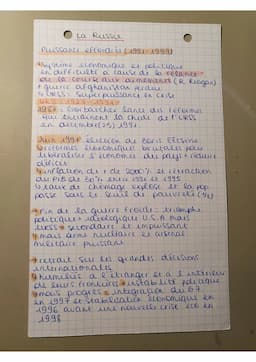 La Russie
Puissance effondrée (1991-1999)
Système économique et politique
en difficultés à cause de la relance
de la course aux armements (R. Reagan)
+ guerre afghanistan perdue
URSS: Superpuissance en crise
1985: Gorbatchev lance des réformes
qui entrainent la chute de l'URSS
en décembre (25) 1991
Juin 1991 élection de Boris Eltsine:
réformes économiques brutales pour
libéraliser l'économie du pays + réduire
déficit
inflation de + de 200% et rétraction
du PIB de 30% entre 1991 et 1995
taux de chômage explose et la pop
passe sous le seuil de pauvreté
Fin de la guerre froide: triomphe
politique + idéologique U.S.A mais
URSS → suicidaire et impuissant
mais arme nucléaire et arsenal
militaire puissant
retrait sur les grandes décisions
internationales
humiliés à l'étranger et à l'intérieur
de leurs frontières → instabilité politique
mais progrès → intégration au G7
en 1997 et stabilisation économique en
1996 avant une nouvelle crise éco en
1998